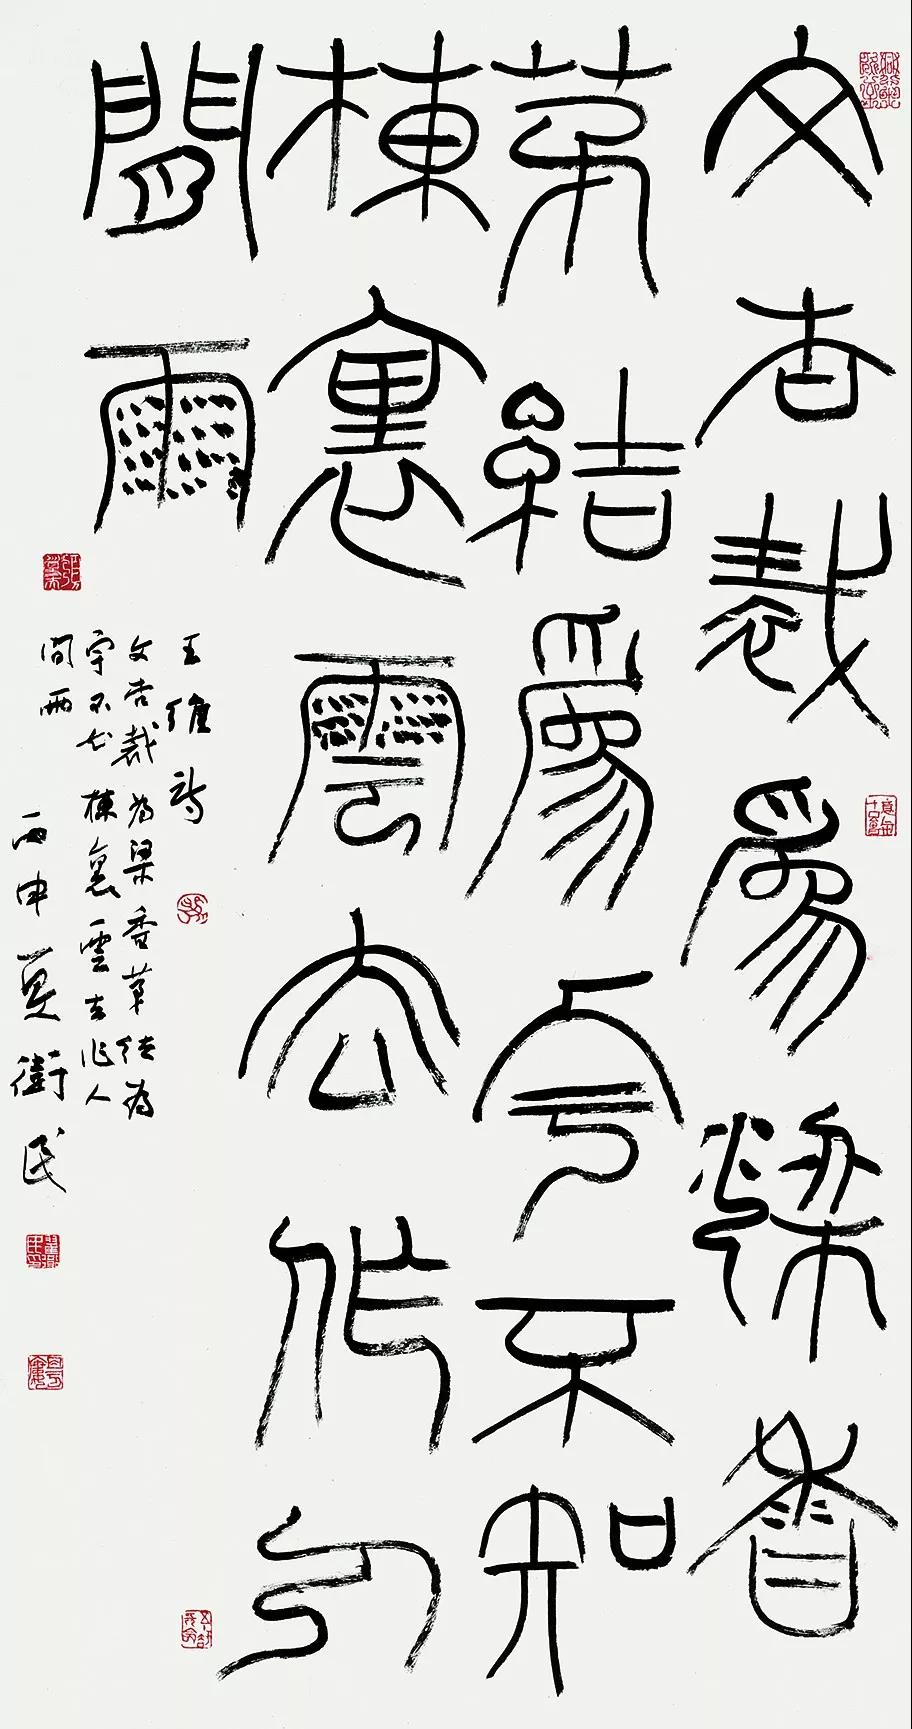 文杏裁爲梁香
茅結爲宇不知
棟裏雲去作人
閒雨
王維詩
文杏裁为梁香茅结为
宇不知棟裏雲去作人
间雨
丙申夏衛民